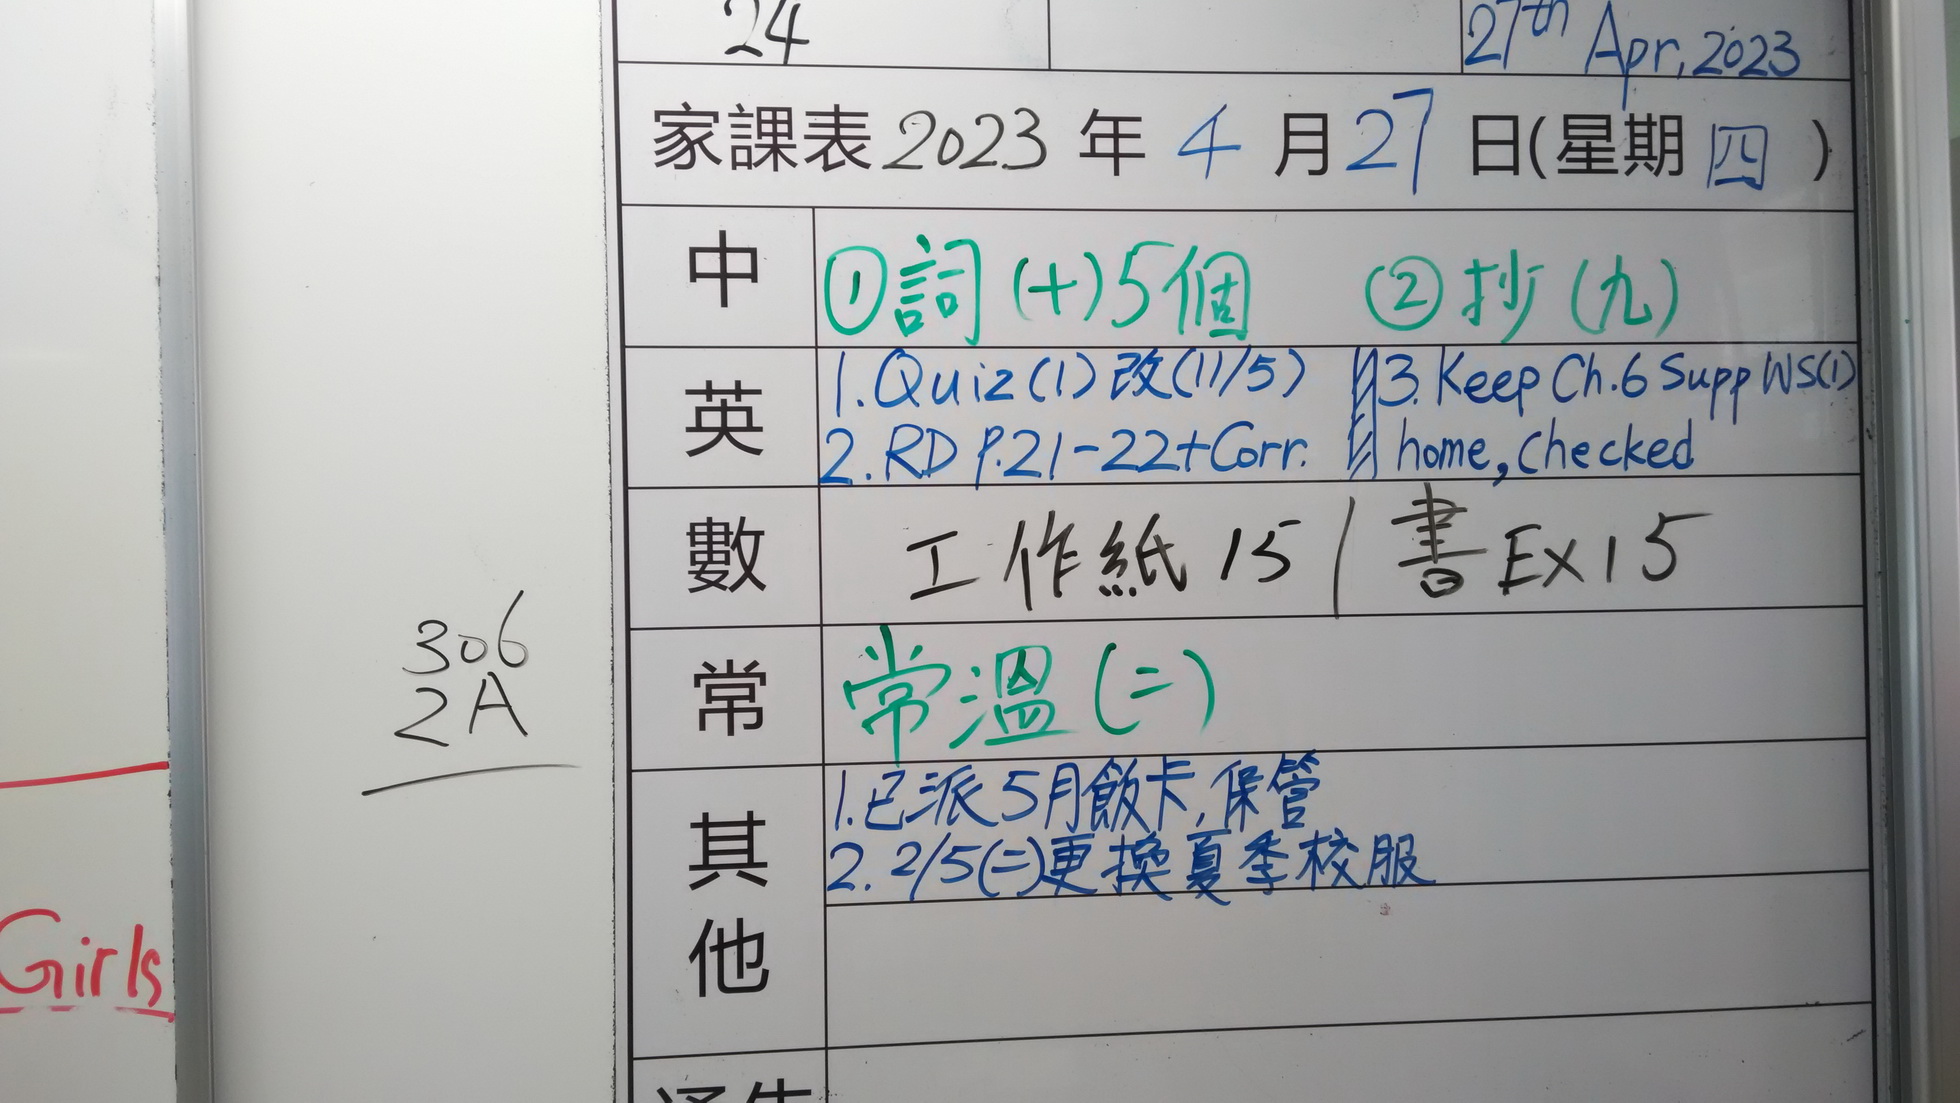 24
27th Apr, 2023
家課表 2023 年 4 月 27 日(星期 四 )
中
①詞(十)5個 ②抄(九)
英
1. Quiz(1)改(11/5)
2. RD P.21-22+Corr.
3. Keep Ch.6 Supp WS(1)
home, checked
數
工作紙 15 / 書 Ex15
常
常溫(二)
其他
1. 已派5月飯卡,保管
2. 2/5(二)更換夏季校服
306
2A
Girls